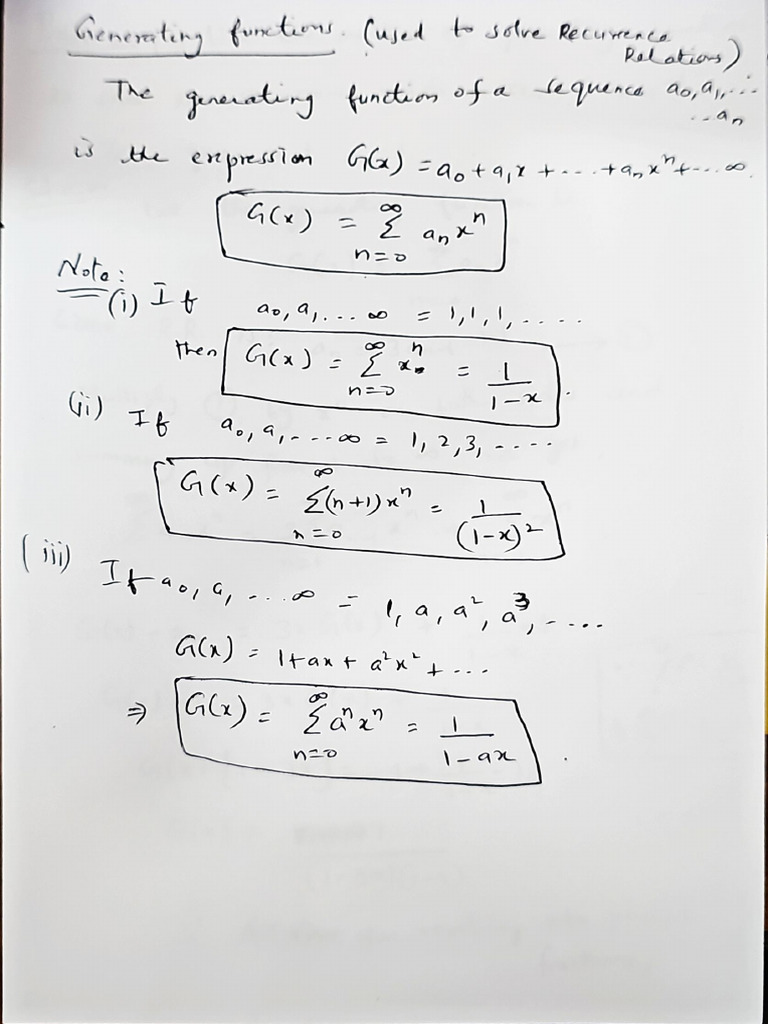 Generating functions. (used to solve Recurrence Relations)
The generating function of a sequence a₀, a₁, ... ..aₙ
is the expression G(x) = a₀ + a₁x + ... + aₙxⁿ + ... ∞.
G(x) = ∞ Σ n=0 aₙxⁿ
Note:
(i) If a₀, a₁, ... ∞ = 1, 1, 1, ....
then G(x) = ∞ Σ n=0 xⁿ = 1/(1-x).
(ii) If a₀, a₁, ... ∞ = 1, 2, 3, ....
G(x) = ∞ Σ n=0 (n+1)xⁿ = 1/(1-x)²
(iii) If a₀, a₁ ... ∞ = 1, a, a², a³, ....
G(x) = 1 + ax + a²x² + ...
⇒ G(x) = ∞ Σ n=0 aⁿxⁿ = 1/(1-ax).